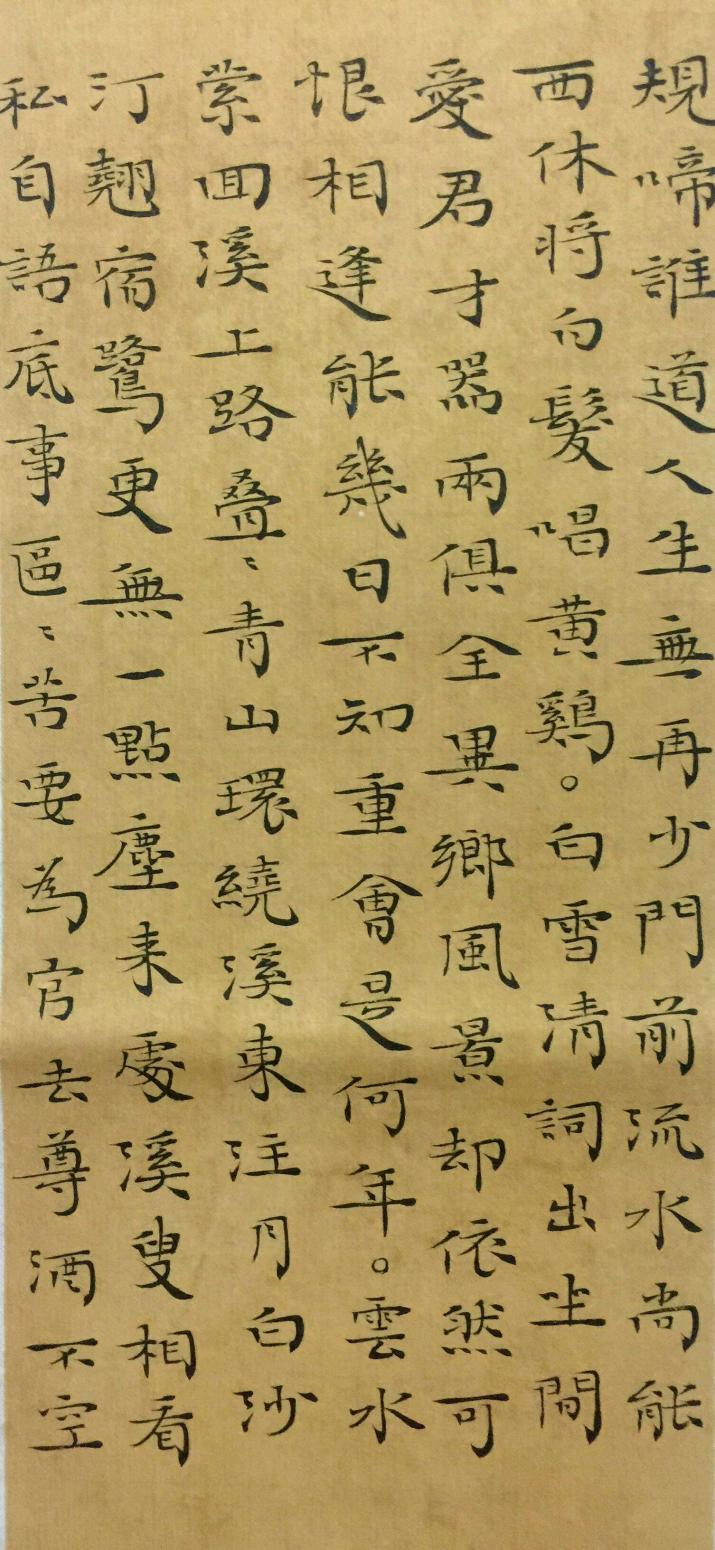 規啼誰道人生無再少門前流水尚能
西休將白髮唱黃鷄。白雪清詞出坐間
愛君才器兩俱全異鄉風景却依然可
恨相逢能幾日不知重會是何年。雲水
縈回溪上路疊〻青山環繞溪東注月白沙
汀翹宿鷺更無一點塵來處溪叟相看
私自語底事區〻苦要為官去尊酒不空